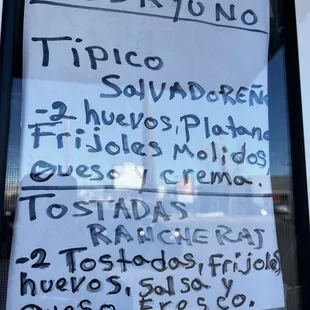 Tipico
SalVADOREÑ
-2 huevos, Platan
Frijoles Molidos
Queso y crema.
TOSTADAS
RANCHERAS
-2 Tostadas, Frijoles
huevos, Salsa y
Queso Fresco.